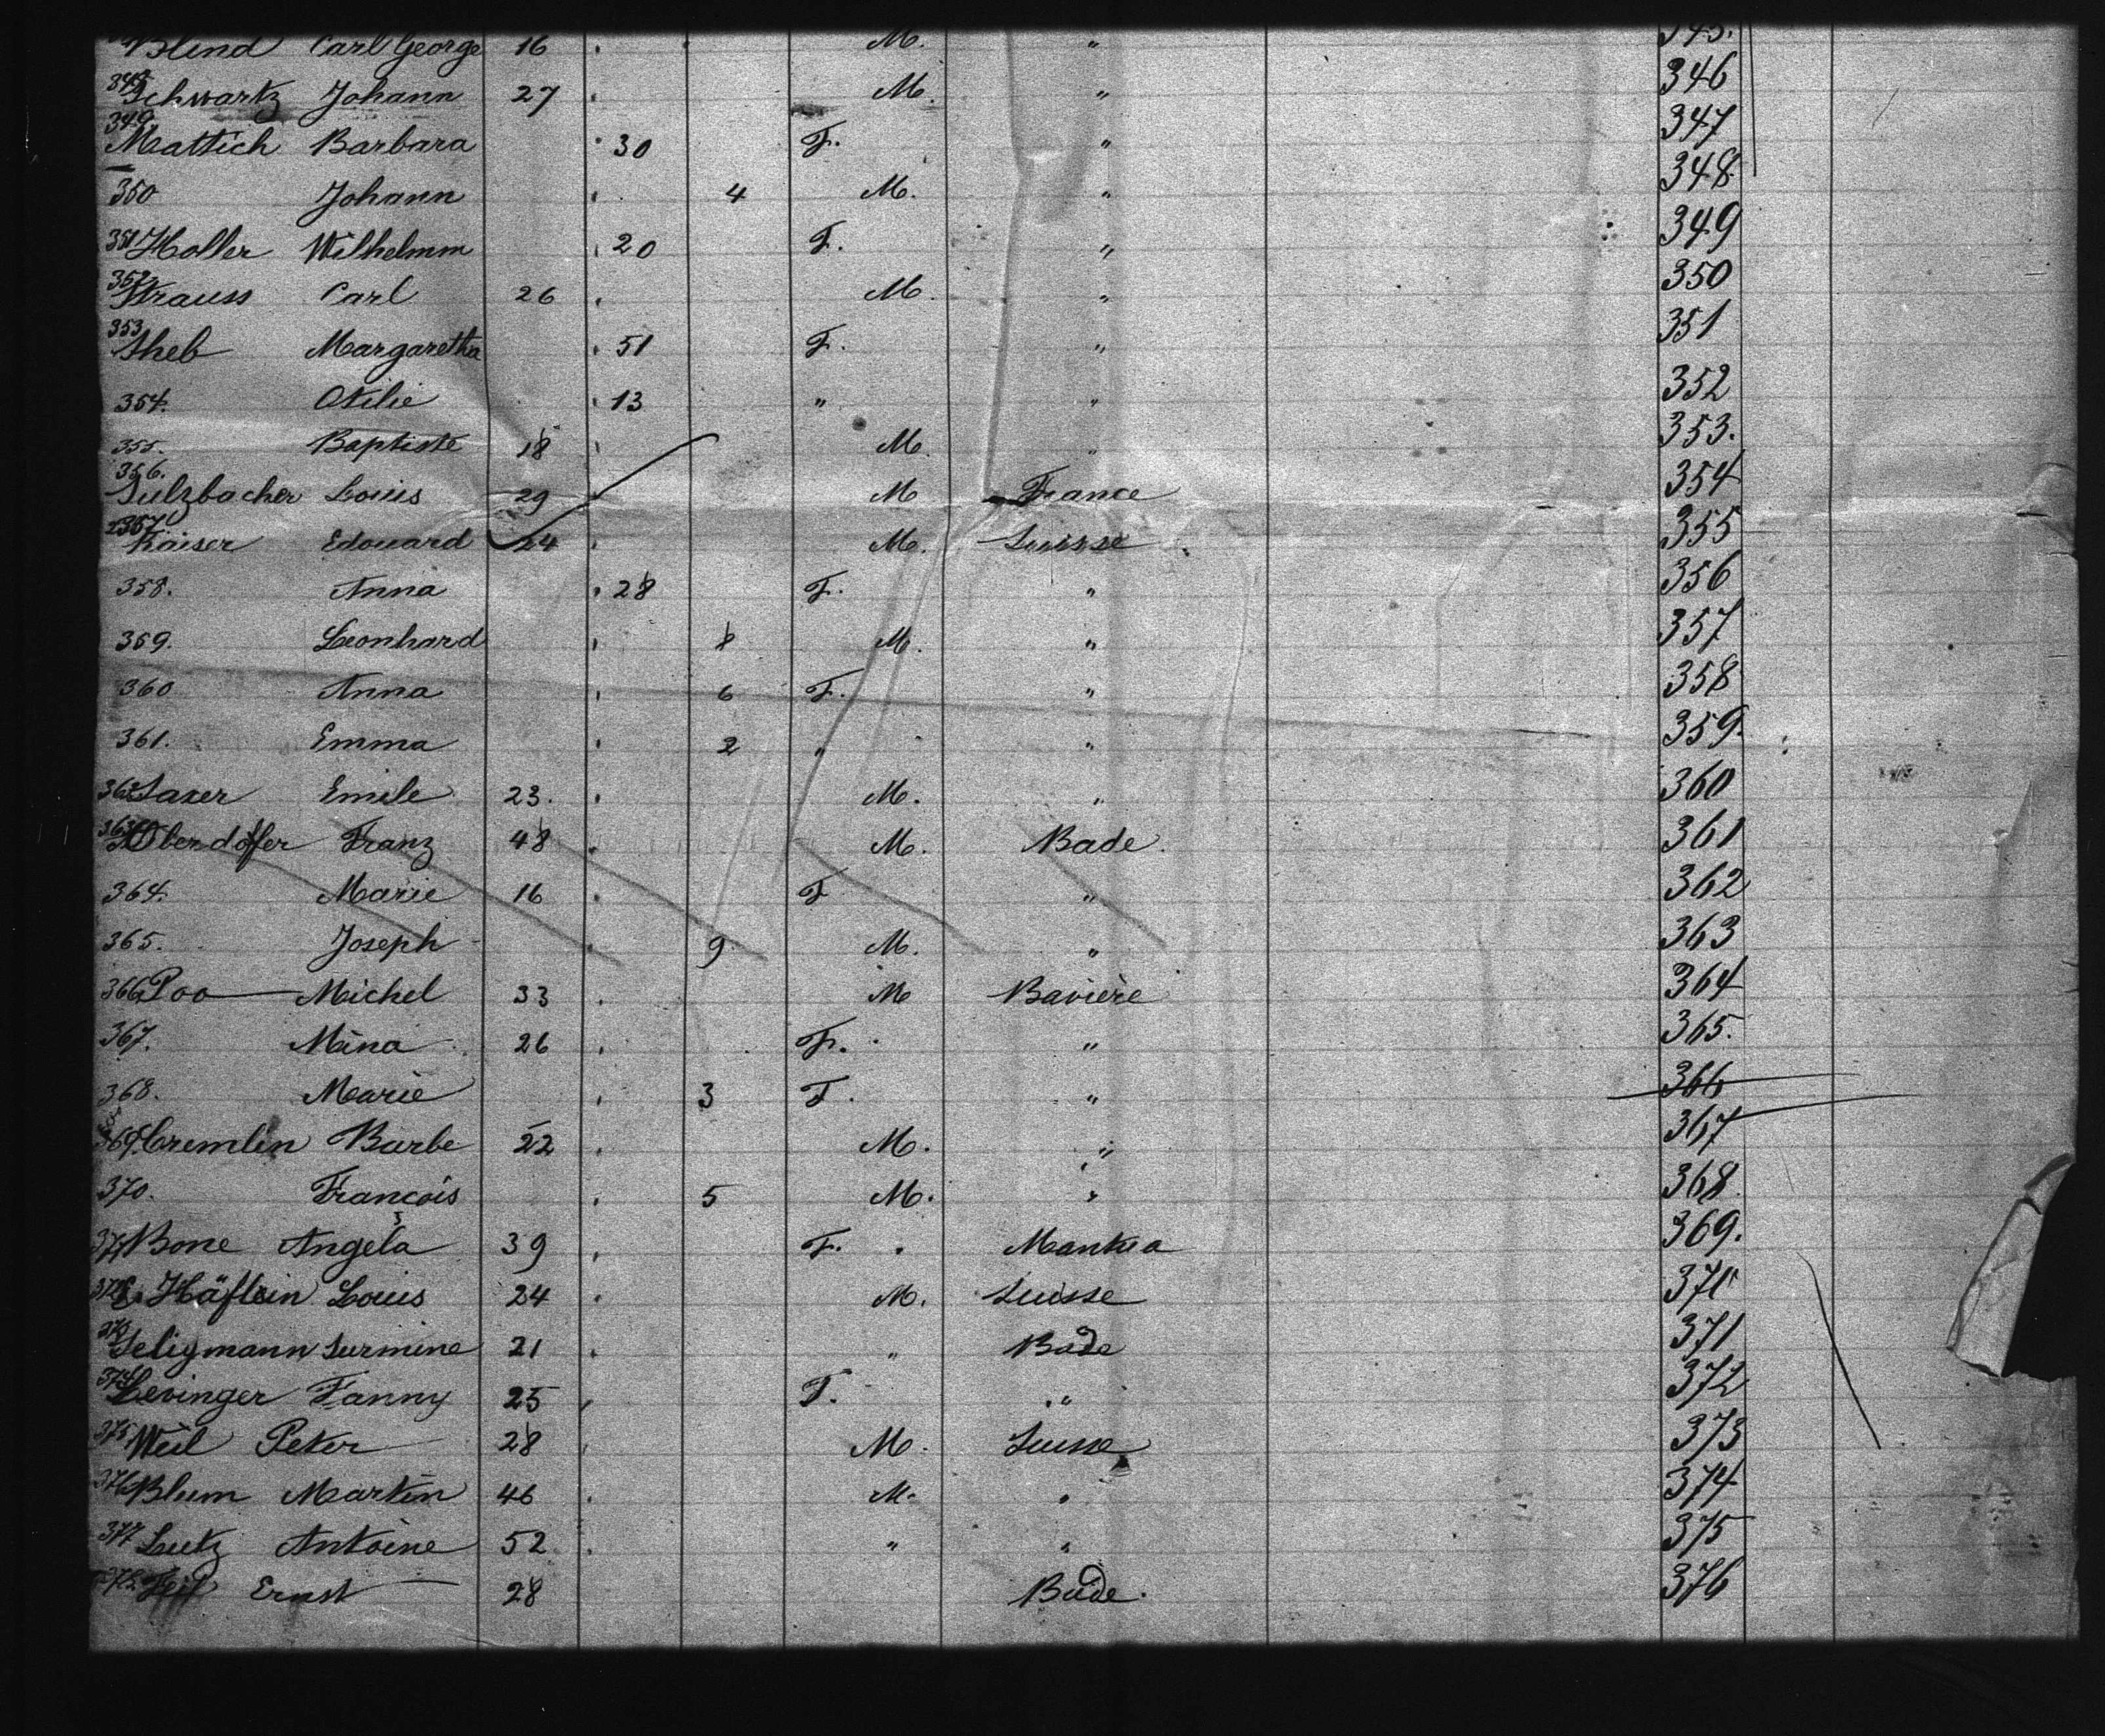 Blind Carl George 16 . M. " 345.
348 Schwartz Johann 27 . M. " 346
349. Mattich Barbara . 30 F. " 347
350 Johann . 4 M. " 348.
351 Holler Wilhelmm . 20 F. " 349
352 Strauss Carl 26 . M. " 350
353 Theb Margaretha . 51 F. " 351
354. Otilie . 13 " " 352
355. Baptiste 18 . M. " 353.
356. Sulzbacher Louis 29 M France 354
357 Kaiser Edouard 24 . M. Suisse 355
358. Anna . 28 F. " 356
359. Leonhard . 8 M. " 357
360 Anna . 6 F. " 358
361. Emma . 2 " " 359.
362 Saxer Emile 23. . M. " 360
363 Oberdofer Franz 48 . M. Bade. 361
364. Marie 16 . F " 362
365. Joseph . 9 M. " 363
366 Poo Michel 33 . M Bavière 364
367. Mina 26 . F. " 365.
368. Marie . 3 F. " 366
369 Cremlin Barbe 22 . M. " 367
370. François . 5 M. " 368.
371 Bone Angela 39 . F. Mantua 369.
372 Häflein Louis 24 . M. Suisse 370
373 Seligmann Surmine 21 . " Bade 371
374 Levinger Fanny 25 . F. " 372
375 Weil Peter 28 . M. Suisse 373
376 Blum Martin 46 . M. " 374
377 Lutz Antoine 52 . " " 375
Ernst 28 Bade. 376